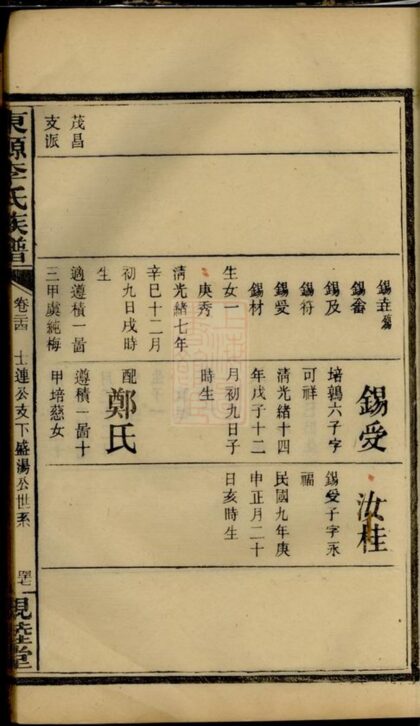 錫垚
錫畲
錫及
錫符
錫愛
錫材
生女一
庚秀
清光緒七年
辛巳十二月
初九日戌時
生
適遵積一啚
三甲虞純梅
錫受
培鶚六子字
可祥
清光緒十四
年戊子十二
月初九日子
時生
配
鄭氏
遵積一啚十
甲培慈女
汝桂
錫受子字永
福
民國九年庚
申正月二十
日亥時生
茂昌
支派
東源李氏族譜
士連公支下盛湯公世系
親睦堂